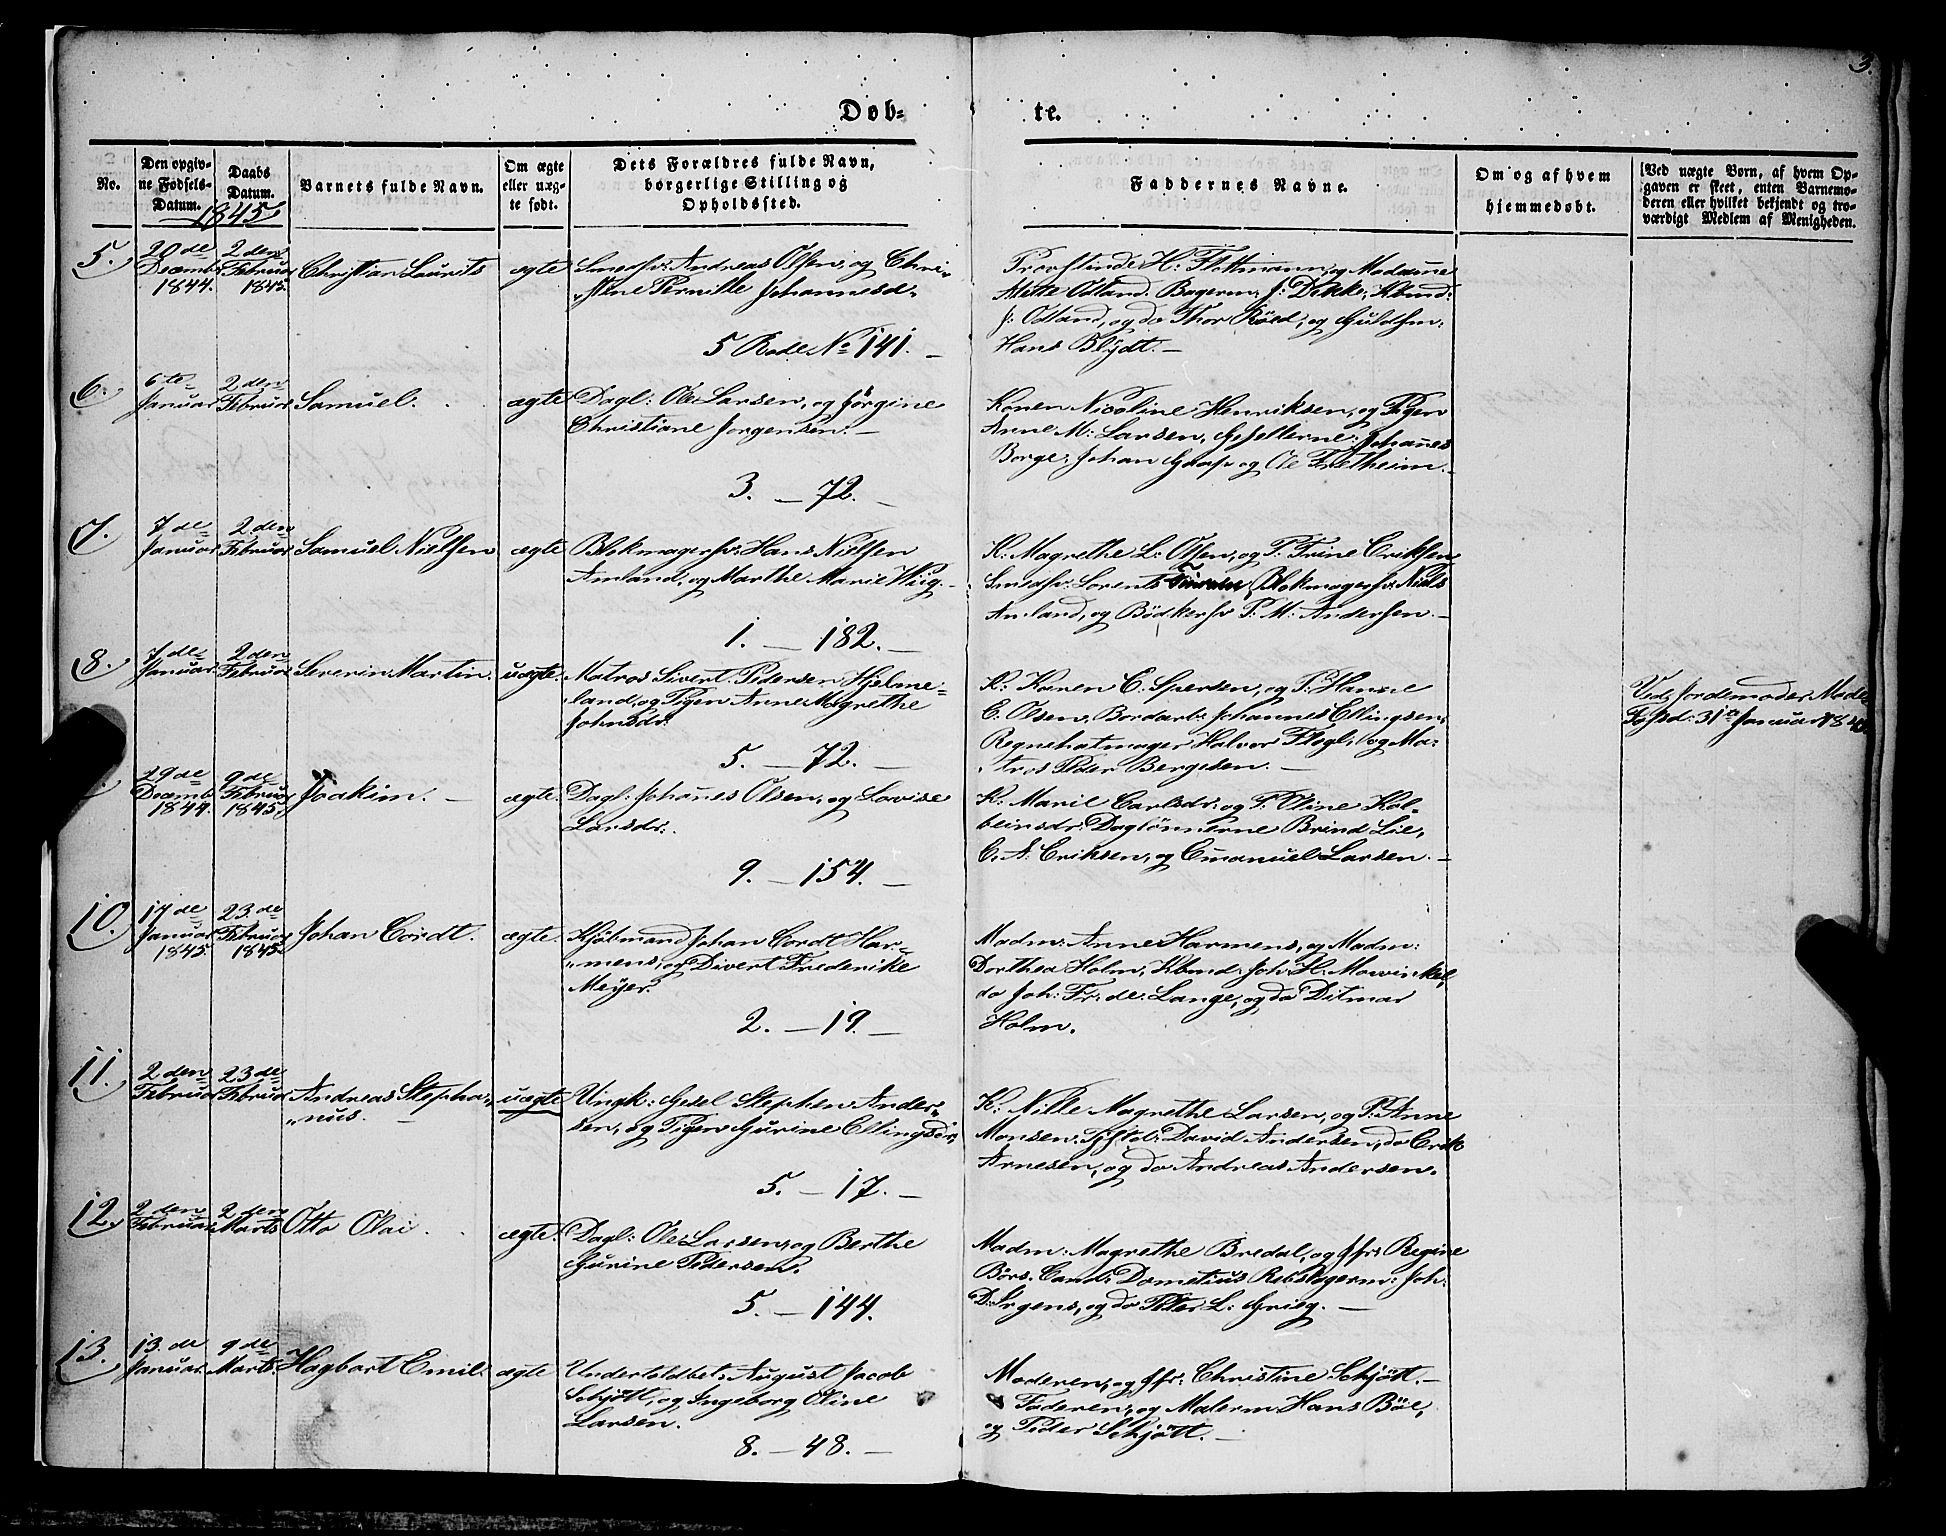 3.
Døb-
te.
No.
Den opgiv-
ne Fødsels-
Datum.
Daabs
Datum.
1845
Barnets fulde Navn.
Om ægte
eller uæg-
te født.
Dets Forældres fulde Navn,
borgerlige Stilling og
Opholdssted.
Faddernes Navne.
Om og af hvem
hjemmedøbt.
Ved uægte Børn, af hvem Op-
gaven er skeet, enten Barnemo-
deren eller hvilket bekjendt og tro-
værdigt Medlem af Menigheden.
5.
20de
Decemb
1844.
2den
Februar
1845.
Christian Laurits
ægte
Smedsv: Andreas Olsen, og Chri-
stine Pernille Johannesd.
5 Rode No 141.
H: Flottmann, og Madame
Mette Odland. Bagerm: J: Dekke, Kbmd:
J: Odland, og do Thor Röed, og Guldsm:
Hans Blydt.
6.
6te
Januar
2den
Februar
Samuel.
ægte
Dagl: Ole Larsen, og Jörgine
Christiane Jorgensen.
3. — 72.
Konen Nicoline Henriksen, og Pigen
Anne M: Larsen, Gesellerne: Johannes
Borge, Johan og Ole Fretheim.
7.
7de
Januar
2den
Februar
Samuel Nielsen
ægte
Blokmagersv: Hans Nielsen
Amland, og Marthe Marie Wiig.
1. — 182.
K: Magrethe L: Olsen, og P: Trine Eriksen
Smedsv: Lorents Blokmagersv: Niels
Amland, og Bödkersv P: M: Andersen.
8.
7de
Januar
2den
Februar
Severin Martin.
uægte.
Matros Sivert Pedersen Hjelme-
land, og Pigen Anne Magrethe
Johnsdr.
5. — 72.
K: Karen E. Spersen, og P: Hanne
C. Olsen, Bordarb: Johannes Ellingsen,
Regnehatmager Halvor Flogl: og Ma-
tros Peder Bergesen.
Ved Jordemoder Made
31te Januar 1845.
29de
Decemb
1844.
9de
Februar
1845.
Joakim.
ægte.
Dagl: Johanes Olsen, og Lovise
Larsdr.
9. — 154.
K: Marie Carlsdr: og P: Oline Kol-
beinsdr: Daglönnerne Brind Lie,
E. A: Eriksen, og Emanuel Larsen.
10.
17de
Januar
1845.
23.de
Februar
1845.
Johan Cordt.
ægte.
Kjöbmand Johan Cordt Har-
mens, og Divert Frederike
Meyer.
2. — 19.
Madm: Anne Harmens, og Madm:
Dorthea Holm, Kbmd: Joh: H. Mowinkel,
do Joh: Fr: de Lange, og do Ditmar
Holm.
11.
2den
Februar
23de
Februar
Andreas Stepha-
nus.
uægte
Ungk: Gesel Stephen Ander-
sen, og Pigen Gurine Ellingsdr.
5. — 17.
K: Nille Magrethe Larsen, og P: Anne
Monsen. David Andersen, do Erik
Arnesen, og do Andreas Andersen.
12.
2den
Februar
2den
Marts
Otto Olai.
ægte.
Dagl: Ole Larsen, og Berthe
Gurine Pedersen.
5. — 144.
Madm: Magrethe Bredal, og Jfr: Regine
Börs. Cand: Dometius Rebslagerm: Joh:
D: Irgens, og do Peter L: Grieg.
13.
13.de
Januar
9de
Marts
Hagbart Emil.
ægte
Undertoldbet: August Jacob
Schjött, og Ingeborg Oline
Larsen.
8. — 48.
Moderen, og Jfr: Christine Schjött.
Faderen, og Malerm Hans Böe,
og Peder Schjött.